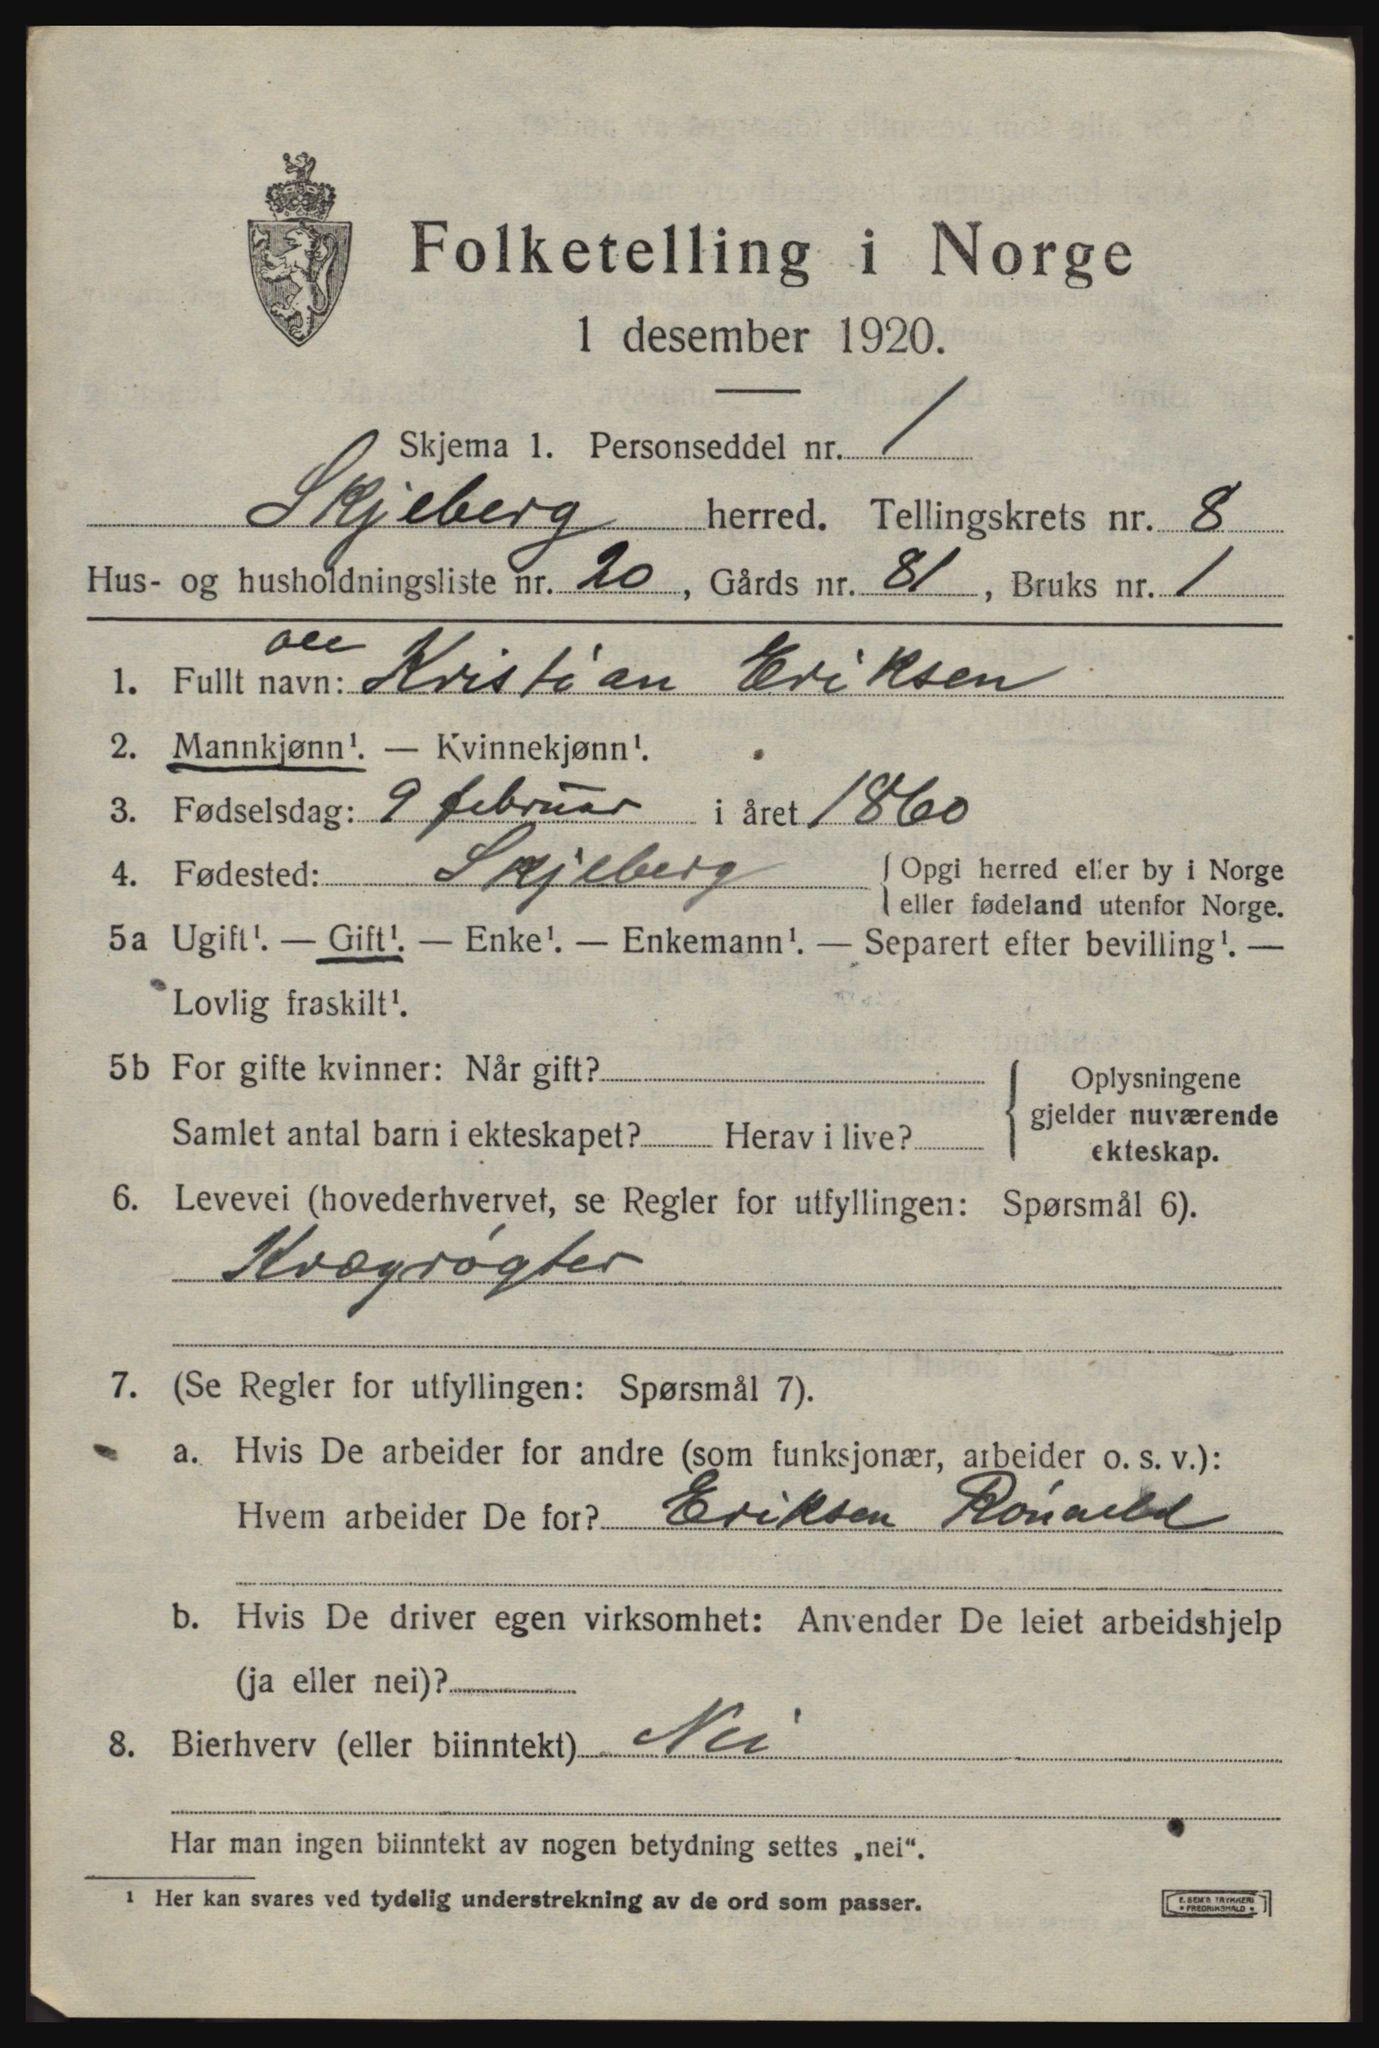 Folketelling i Norge
1 desember 1920.
Skjema 1. Personseddel nr. 1
Skjeberg herred. Tellingskrets nr. 8
Hus- og husholdningsliste nr. 20, Gårds nr. 81, Bruks nr. 1
Ole
1. Fullt navn: Kristian Eriksen
2. Mannkjønn¹. — Kvinnekjønn¹.
3. Fødselsdag: 9 februar i året 1860
4. Fødested: Skjeberg { Opgi herred eller by i Norge
eller fødeland utenfor Norge.
5a Ugift¹. — Gift¹. — Enke¹. — Enkemann¹. — Separert efter bevilling¹. —
Lovlig fraskilt¹.
5b For gifte kvinner: Når gift?
Samlet antal barn i ekteskapet? Herav i live?
{ Oplysningene
gjelder nuværende
ekteskap.
6. Levevei (hovederhvervet, se Regler for utfyllingen: Spørsmål 6).
Kvægrøgter
7. (Se Regler for utfyllingen: Spørsmål 7).
a. Hvis De arbeider for andre (som funksjonær, arbeider o. s. v.):
Hvem arbeider De for? Eriksen
b. Hvis De driver egen virksomhet: Anvender De leiet arbeidshjelp
(ja eller nei)?
8. Bierhverv (eller biinntekt) Nei
Har man ingen biinntekt av nogen betydning settes „nei“.
¹ Her kan svares ved tydelig understrekning av de ord som passer.
E. SEM'S TRYKKERI
* FREDRIKSHALD *